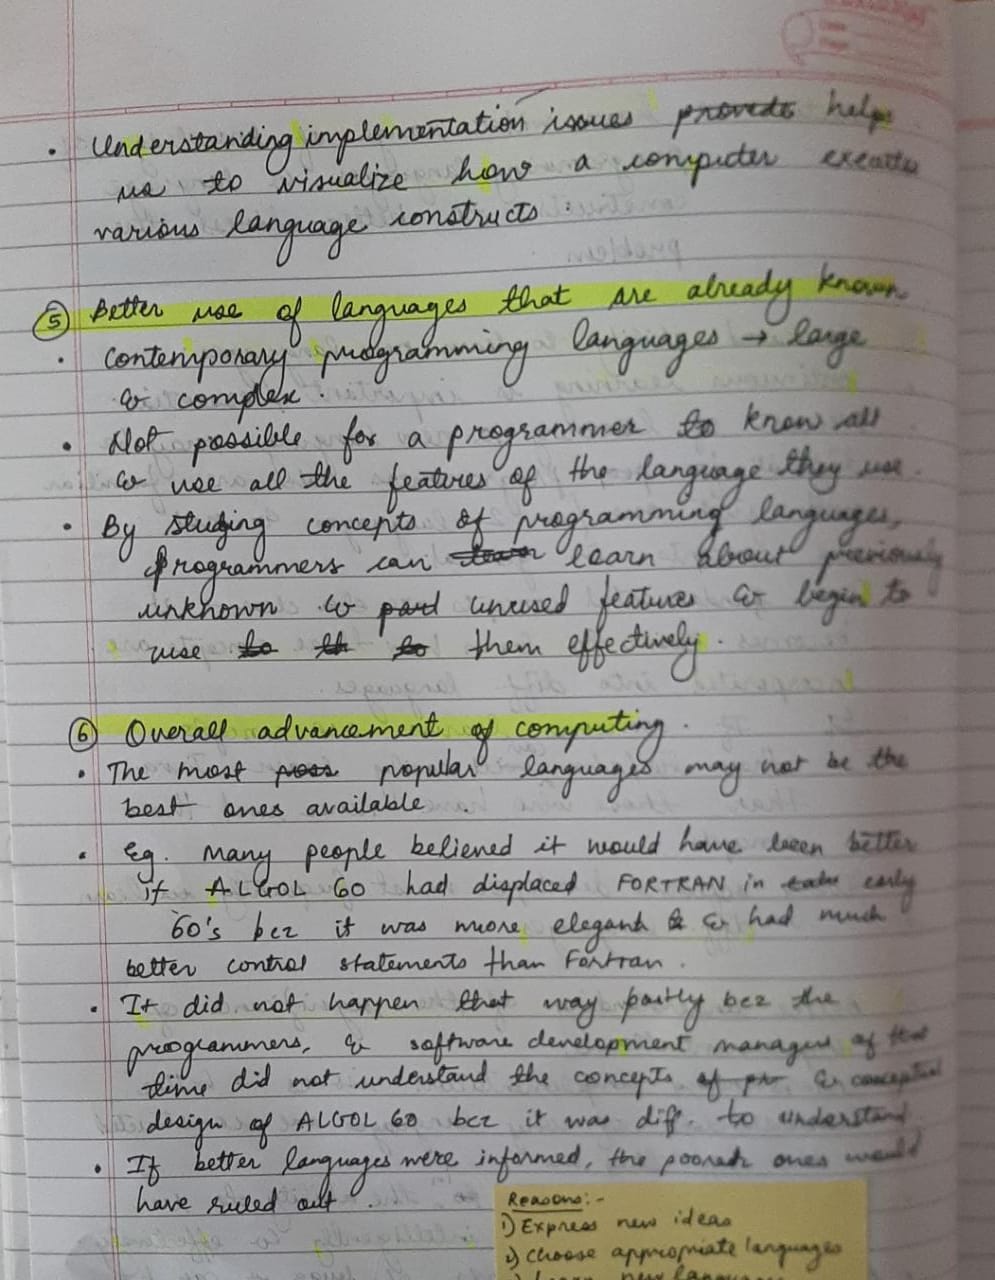 • Understanding implementation issues proveds helps
us to visualize how a computer executes
various language constructs.
⑤ Better use of languages that are already known
• Contemporary programming languages → large
& complex.
• Not possible for a programmer to know all
& use all the features of the language they use.
• By studing concepts of programming languages,
programmers can learn about previously
unknown & unused features & begin to
use to th to them effectively.
⑥ Overall advancement of computing.
• The most popular languages may not be the
best ones available.
• Eg. Many people believed it would have been better
if ALGOL 60 had displaced FORTRAN in early
60's bcz it was more elegant & & had much
better control statements than Fortran.
• It did not happen that way partly bcz the
programmers, & software development managers of that
time did not understand the concepts of pr & conceptual
design of ALGOL 60 bcz it was diff. to understand
• If better languages were informed, the poorer ones would
have ruled out.
Reasons:-
1) Express new ideas
2) Choose appropriate languages
new